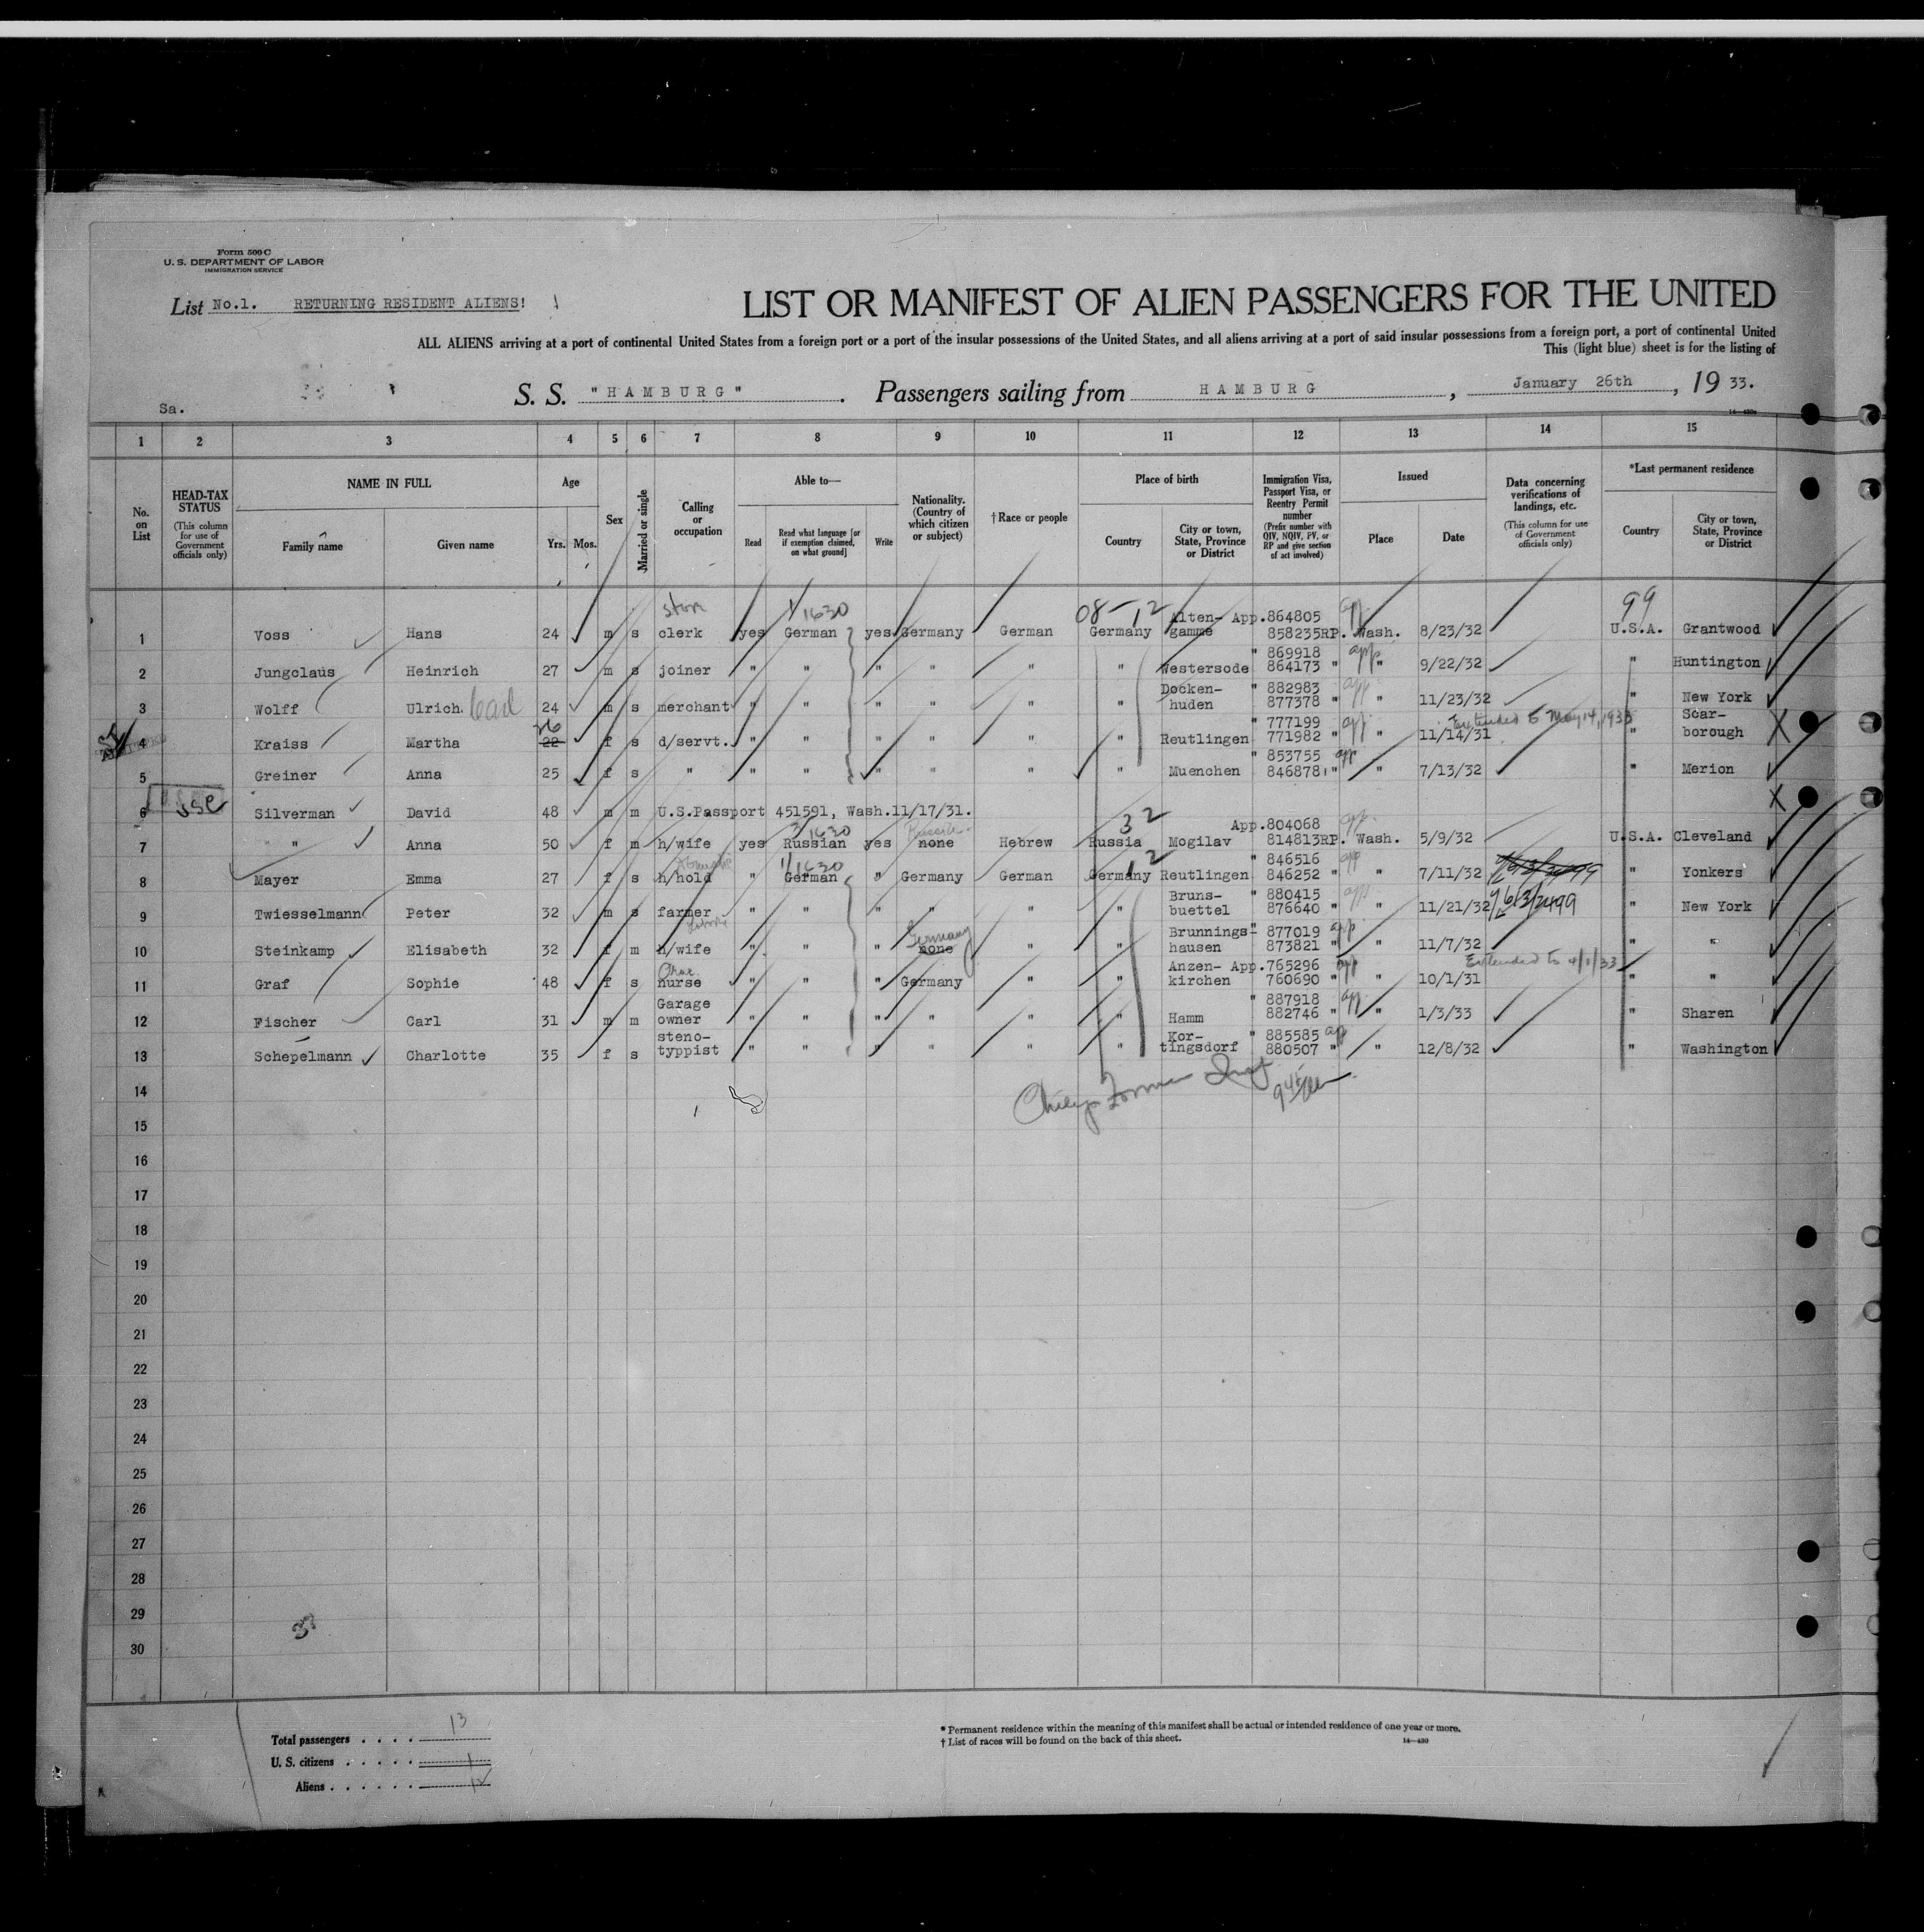 Form 500 C
U. S. DEPARTMENT OF LABOR
IMMIGRATION SERVICE
List No.1. RETURNING RESIDENT ALIENS!
LIST OR MANIFEST OF ALIEN PASSENGERS FOR THE UNITED
ALL ALIENS arriving at a port of continental United States from a foreign port or a port of the insular possessions of the United States, and all aliens arriving at a port of said insular possessions from a foreign port, a port of continental United
This (light blue) sheet is for the listing of
Sa.
S. S. "HAMBURG". Passengers sailing from HAMBURG, January 26th, 19 33.
1 2 3 4 5 6 7 8 9 10 11 12 13 14 15
No. on List
HEAD-TAX STATUS (This column for use of Government officials only)
NAME IN FULL
Family name Given name
Age Yrs. Mos.
Sex
Married or single
Calling or occupation
Able to— Read Read what language [or if exemption claimed, on what ground] Write
Nationality. (Country of which citizen or subject)
†Race or people
Place of birth Country City or town, State, Province or District
Immigration Visa, Passport Visa, or Reentry Permit number (Prefix number with QIV, NQIV, PV, or RP and give section of act involved)
Issued Place Date
Data concerning verifications of landings, etc. (This column for use of Government officials only)
*Last permanent residence Country City or town, State, Province or District
store 1/1630 08-12 99
1 Voss Hans 24 m s clerk yes German yes Germany German Germany Alten-gamme App.864805 858235RP. app. Wash. 8/23/32 U.S.A. Grantwood
2 Jungclaus Heinrich 27 m s joiner " " " " " " Westersode " 869918 864173 " app " 9/22/32 " Huntington
3 Wolff Ulrich Carl 24 m s merchant " " " " " " Docken-huden " 882983 877378 " app " 11/23/32 " New York
4 Kraiss Martha 22 26 f s d/servt. " " " " " " Reutlingen " 777199 771982 " app " 11/14/31 Extended to May 14, 1933 " Scar-borough X
5 Greiner Anna 25 f s " " " " " " " Muenchen " 853755 846878 " app " 7/13/32 " Merion
USC
6 Silverman David 48 m m U.S.Passport 451591, Wash.11/17/31. X
3/1630 Russia 32
7 " Anna 50 f m h/wife yes Russian yes none Hebrew Russia Mogilav App.804068 814813RP. app. Wash. 5/9/32 U.S.A. Cleveland
1/1630 12
8 Mayer Emma 27 f s h/hold " German " Germany German Germany Reutlingen " 846516 846252 " app " 7/11/32 " Yonkers
9 Twiesselmann Peter 32 m s farmer " " " " " " Bruns-buettel " 880415 876640 " app " 11/21/32 " New York
10 Steinkamp Elisabeth 32 f m h/wife " " " none Germany " " Brunnings-hausen " 877019 873821 " app " 11/7/32 " "
11 Graf Sophie 48 f s nurse " " " Germany " " Anzen-kirchen App.765296 760690 " app " 10/1/31 Extended to 4/1/33 " "
12 Fischer Carl 31 m m Garage owner " " " " " " Hamm " 887918 882746 " app " 1/3/33 " Sharen
13 Schepelmann Charlotte 35 f s steno-typpist " " " " " " Kor-tingsdorf " 885585 880507 " app " 12/8/32 " Washington
14
15
16
17
18
19
20
21
22
23
24
25
26
27
28
29
30
Total passengers . . . . 13
U. S. citizens . . . . . 1
Aliens . . . . . . 12
* Permanent residence within the meaning of this manifest shall be actual or intended residence of one year or more.
† List of races will be found on the back of this sheet.
14—430